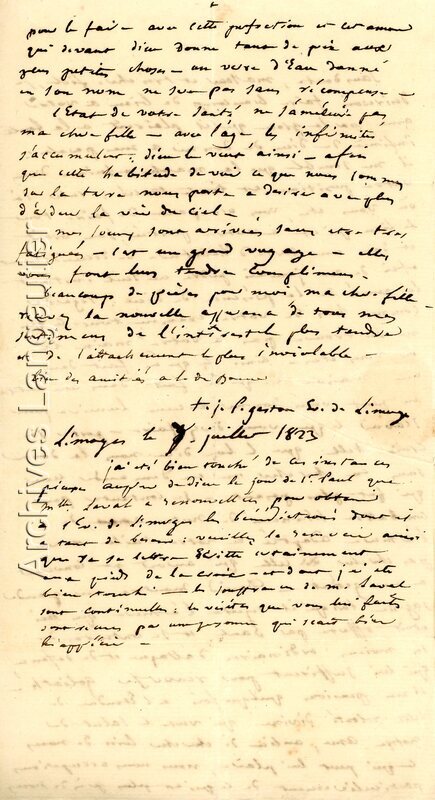 pour le faire avec cette perfection et cet amour
qui devant dieu donne tant de prix aux
plus petites choses - un verre d'Eau donné
en son nom ne sera pas sans récompense -
l'Etat de votre santé ne s'améliore pas
ma chere fille - avec l'âge les infirmités
s'accumulent, dieu le veut ainsi - afin
que cette habitude de voir ce que nous sommes
sur la terre nous porte a desirer avec plus
d'ardeur la vie du Ciel -
mes soeurs sont arrivées sans etre tres
fatiguées - c'est un grand voyage - elles
vous font leurs tendres complimens -
beaucoup de prières pour moi, ma chere fille -
recevez la nouvelle assurance de tous mes
sentimens de l'intérest le plus tendre
et de l'attachement le plus inviolable -
bien des amitiés a
+ j. p. gaston Ev. de Limoges
Limoges le 7 juillet 1823
j'ai été bien touché de ces instances
pieuses auprès de dieu le jour de St Paul que
Mlle Laval a renouvellées pour obtenir
a l'Ev. de Limoges les bénédictions dont il
a tant de besoin : veuillez la remercier ainsi
que de sa lettre Ecritte certainement
aux pieds de la croix - et dont j'ai été
bien touché - les souffrances de m. Laval
sont continuelles : les visites que vous lui faites
sont reçues par une personne qui scait bien
les apprécier -
Archives Languillier